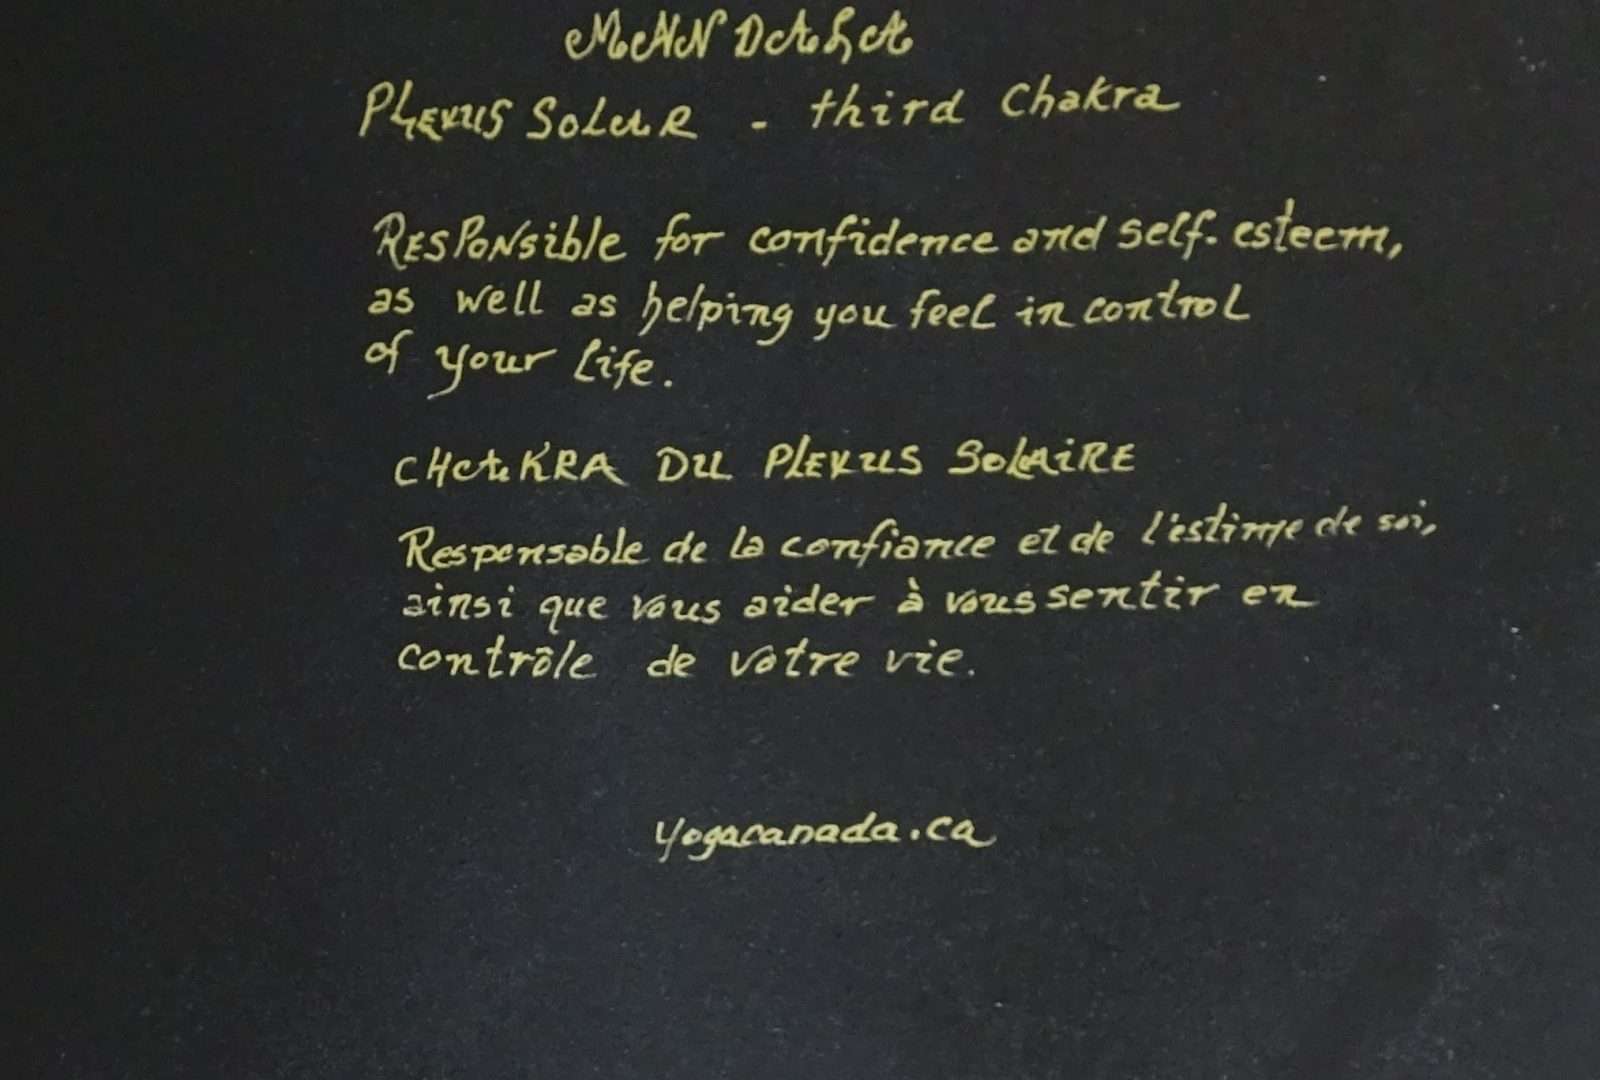 MANDALA
PLEXUS SOLAR - third Chakra
RESPONsible for confidence and self-esteem,
as well as helping you feel in control
of your life.
CHAKRA DU PLEXUS SOLAIRE
Responsable de la confiance et de l'estime de soi,
ainsi que vous aider à vous sentir en
contrôle de votre vie.
yogacanada.ca